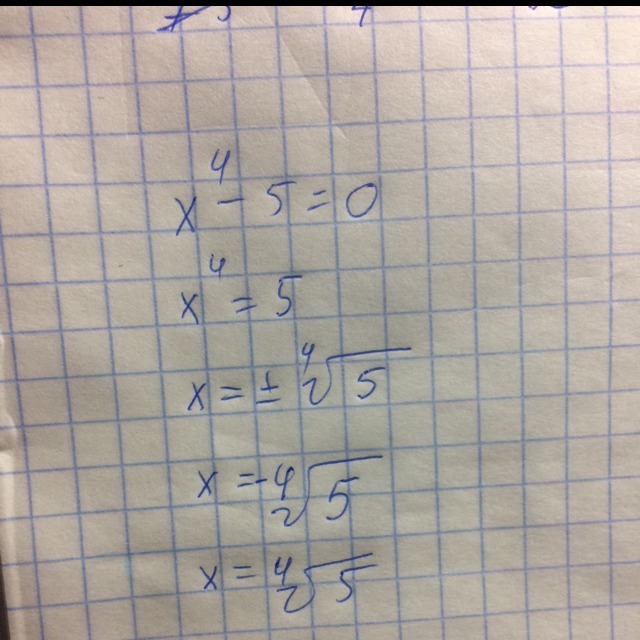 x⁴ - 5 = 0
x⁴ = 5
x = ± ∜5
x = -∜5
x = ∜5